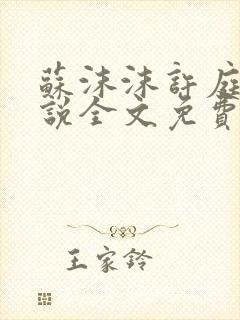 蘇沫沫許庭
說全文免費
王家鈴